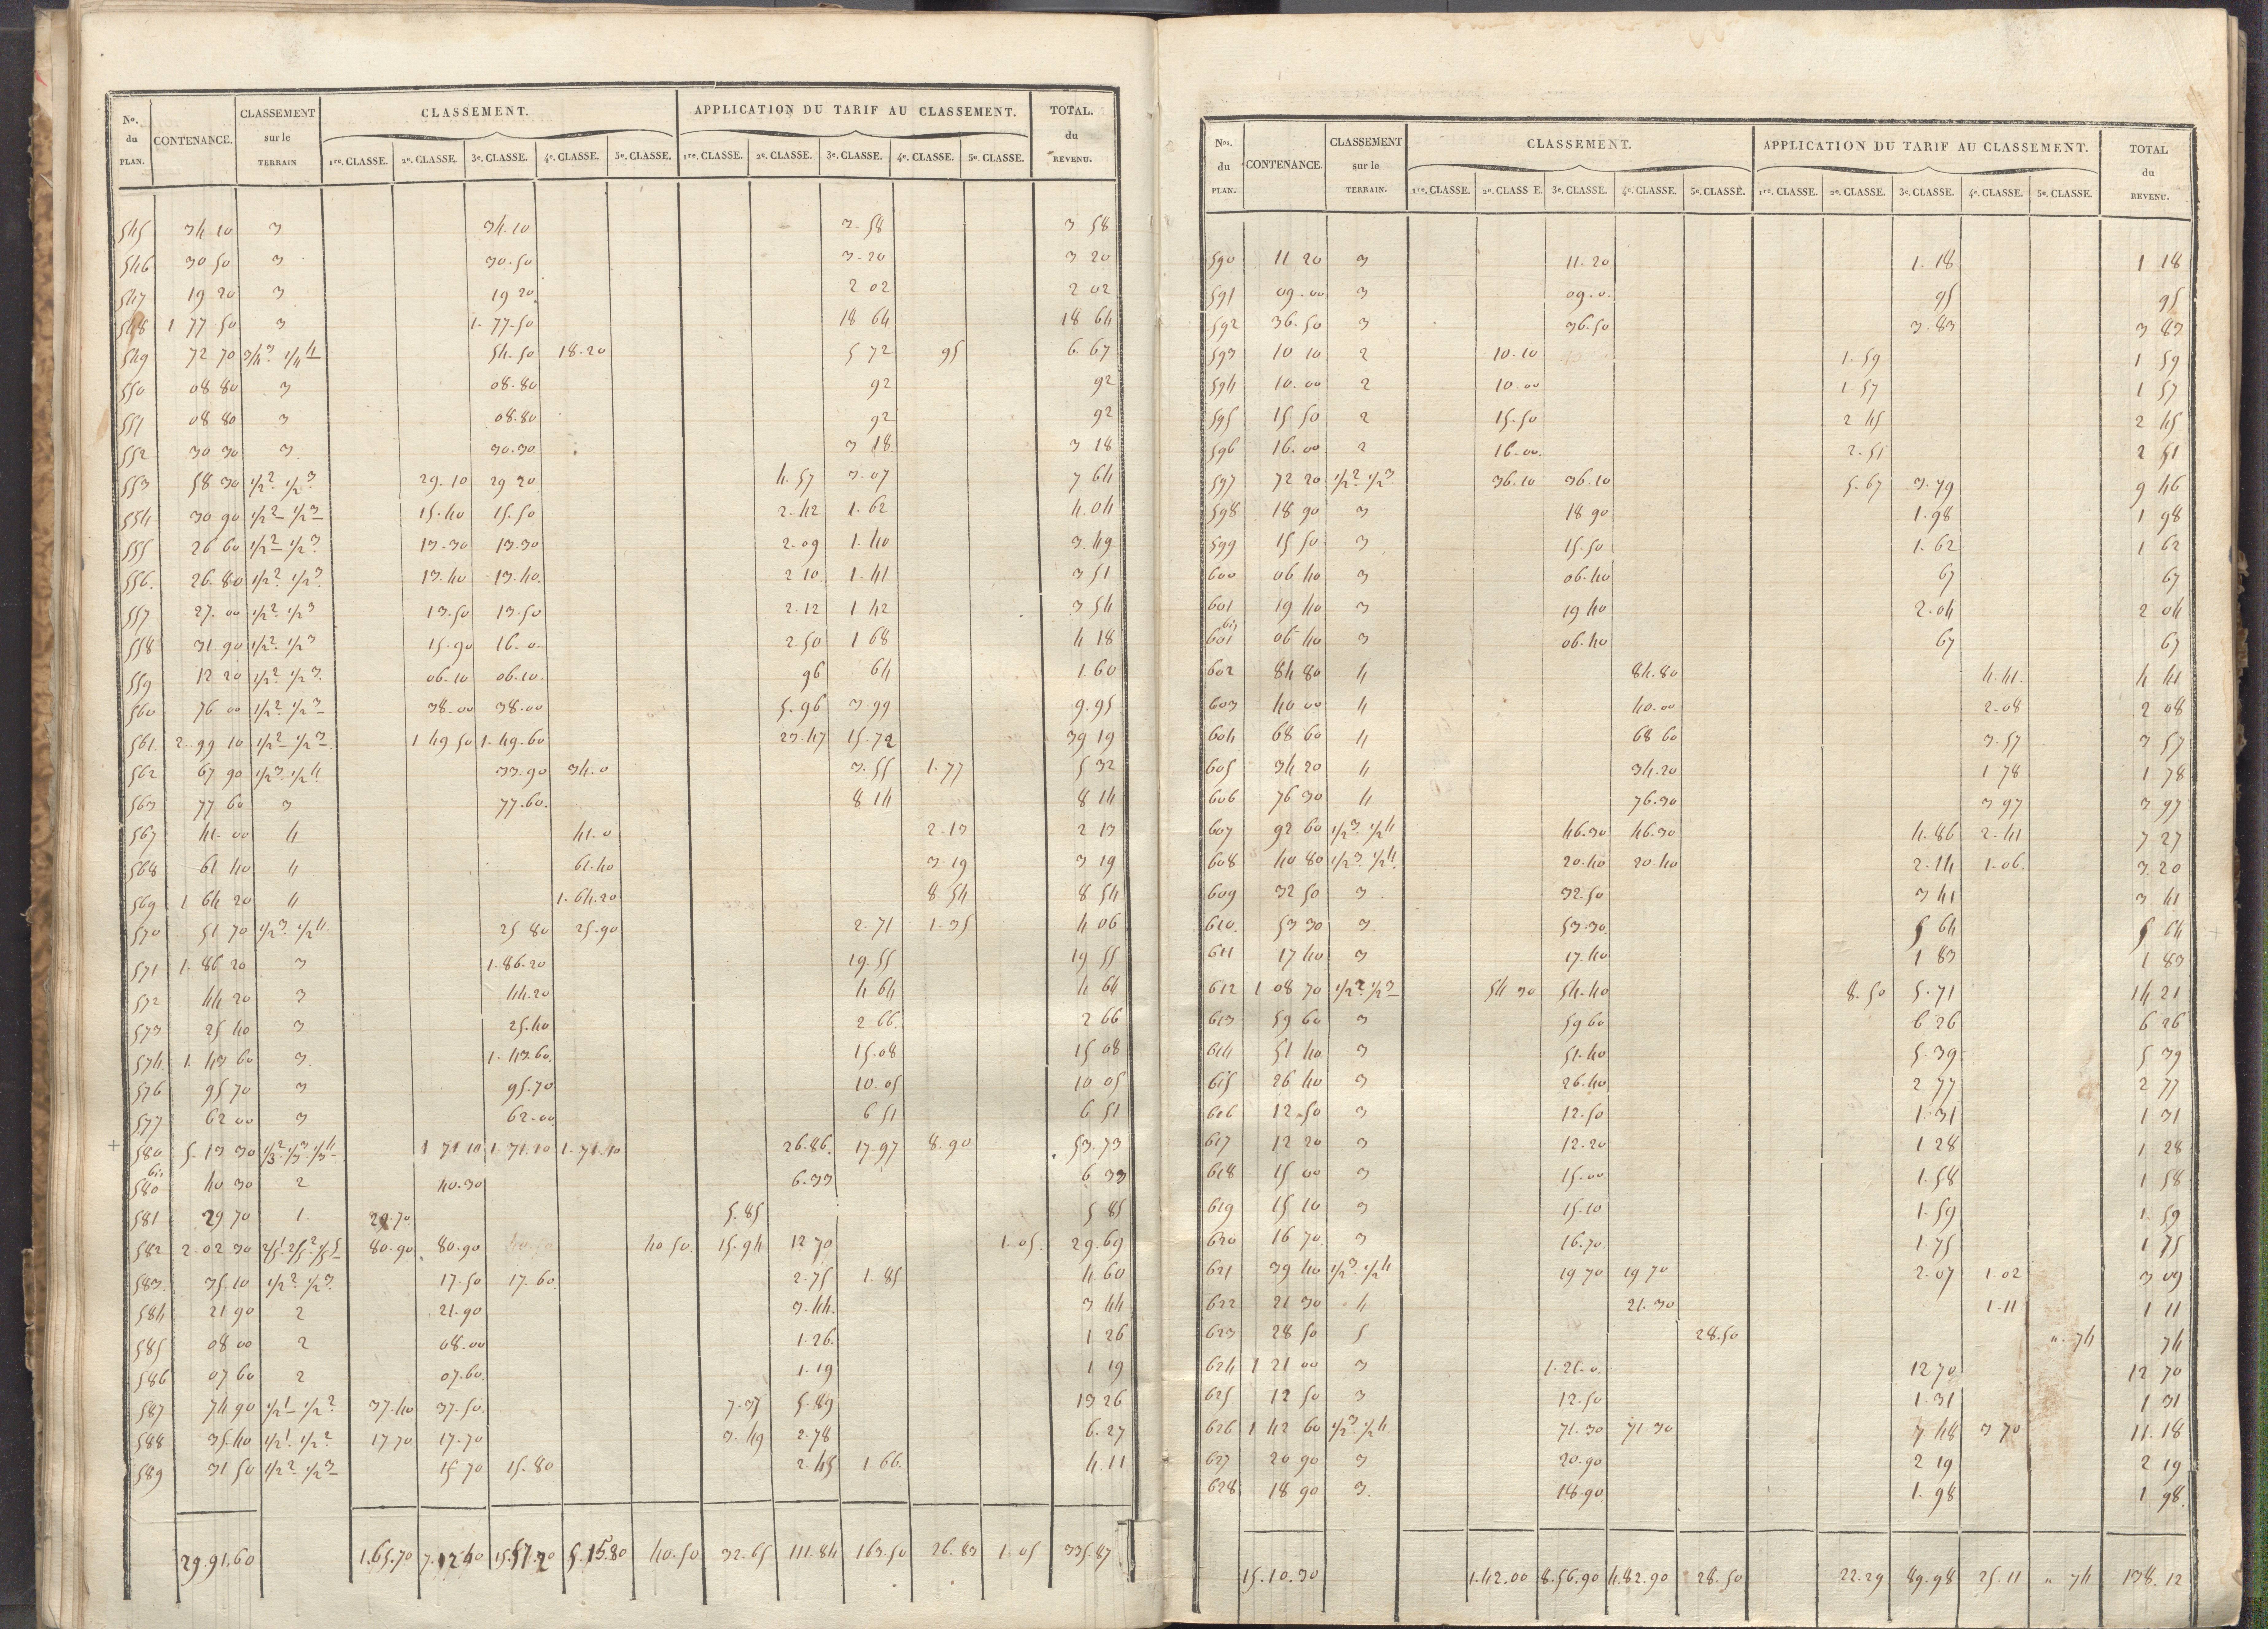 No. du PLAN. CONTENANCE. CLASSEMENT sur le TERRAIN CLASSEMENT. APPLICATION DU TARIF AU CLASSEMENT. TOTAL. du REVENU.
1re. CLASSE. 2e. CLASSE. 3e. CLASSE. 4e. CLASSE. 5e. CLASSE. 1re. CLASSE. 2e. CLASSE. 3e. CLASSE. 4e. CLASSE. 5e. CLASSE.
545 34 10 3 34.10 3.58 3 58
546 30 50 3 30.50 3.20 3 20
547 19 20 3 19 20 2 02 2 02
548 1 77 50 3 1.77.50 18 64 18 64
549 72 70 3/4 3. 1/4 4 54.50 18.20 5 72 95 6.67
550 08 80 3 08.80 92 92
551 08 80 3 08.80 92 92
552 30 30 3. 30.30 3 18. 3 18
553 58 30 1/2 2. 1/2 3 29.10 29 20 4.57 3.07 7 64
554 30 90 1/2 2 1/2 3 15.40 15.50 2.42 1.62 4.04
555 26 60 1/2 2 1/2 3 13.30 13.30 2.09 1.40 3.49
556. 26.80 1/2 2. 1/2 3. 13.40 13.40. 2 10. 1.41 3 51
557 27.00 1/2 2. 1/2 3 13.50 13.50 2.12 1 42 3 54
558 31 90 1/2 2. 1/2 3 15.90 16.0. 2.50 1 68 4 18
559 12 20 1/2 2. 1/2 3. 06.10 06.10. 96 64 1.60
560 76 00 1/2 2. 1/2 3 38.00 38.00 5.96 3.99 9.95
561. 2.99 10 1/2 2 1/2 3. 1 49 50 1.49.60 23.47 15.72 39 19
562 67 90 1/2 3. 1/2 4. 33.90 34.0 3.55 1.77 5 32
563 77 60 3 77.60. 8 14 8 14
567 41.00 4 41.0 2.13 2 13
568 61 40 4 61.40 3.19 3 19
569 1 64 20 4 1.64.20 8 54 8 54
570 51 70 1/2 3. 1/2 4 25 80 25.90 2.71 1.35 4 06
571 1.86 20 3 1.86.20 19.55 19 55
572 44 20 3 44.20 4 64 4 64
573 25 40 3 25.40 2 66. 2 66
574. 1.43 60 3. 1.43.60. 15.08 15 08
576 95 70 3 95.70 10.05 10 05
577 62 00 3 62.00 6 51 6 51
+ 580 5.13 30 1/3 2. 1/3 3. 1/3 4 1 71 10 1.71.10 1.71.10 26.86. 17.97 8.90 53.73
580 bis 40 30 2 40.30 6.33 6 33
581 29 70 1. 29.70. 5.85 5 85
582 2.02 30 2/5 1. 2/5 2. 1/5 5 80.90 80.90 40 50. 15.94 12 70 1.05. 29.69
583. 35.10 1/2 2. 1/2 3. 17.50 17.60. 2.75 1.85 4.60
584 21 90 2 21.90 3.44. 3 44
585 08 00 2 08.00 1.26. 1 26
586 07 60 2 07.60. 1.19 1 19
587 74 90 1/2 1 1/2 2 37.40 37.50. 7.37 5.89 13 26
588 35.40 1/2 1. 1/2 2 17.70 17.70 3.49 2.78 6.27
589 31 50 1/2 2. 1/2 3 15 70 15.80 2.45 1.66. 4.11
29.91.60 1.65.70 7.12 40 15.57.20 5.15.80 40.50 32.65 111.84 163.50 26.83 1.05 335.87
Nos. du PLAN. CONTENANCE. CLASSEMENT sur le TERRAIN. CLASSEMENT. APPLICATION DU TARIF AU CLASSEMENT. TOTAL du REVENU.
1re. CLASSE. 2e. CLASS E. 3e. CLASSE. 4e. CLASSE. 5e. CLASSE. 1re. CLASSE. 2e. CLASSE. 3e. CLASSE. 4e. CLASSE. 5e. CLASSE.
590 11 20 3 11.20 1.18 1 18
591 09.00 3 09.0. 95 95
592 36.50 3 36.50 3.83 3 83
593 10 10 2 10.10 1.59 1 59
594 10.00 2 10.00 1.57 1 57
595 15 50 2 15.50 2 45 2 45
596 16.00 2 16.00. 2.51 2 51
597 72 20 1/2 2. 1/2 3. 36.10 36.10 5.67 3.79 9 46
598 18 90 3 18 90 1.98 1 98
599 15 50 3 15.50 1.62 1 62
600 06 40 3 06.40 67 67
601 19 40 3 19 40 2.04 2 04
601 bis 06 40 3 06.40 67 67
602 84 80 4 84.80 4.41. 4 41
603 40 00 4 40.00 2.08 2 08
604 68 60 4 68 60 3.57 3 57
605 34 20 4 34.20 1 78 1 78
606 76 30 4 76.30 3 97 3 97
607 92 60 1/2 3. 1/2 4 46.30 46.30 4.86 2.41 7 27
608 40 80 1/2 3 1/2 4. 20.40 20.40 2.14 1.06. 3.20
609 32 50 3 32.50 3 41 3 41
610. 53 30 3. 53.30. 5 64 5 64
611 17 40 3 17.40 1 83 1 83
612 1 08 70 1/2 2. 1/2 3 54 30 54.40 8.50 5.71 14 21
613 59 60 3 59 60 6 26 6 26
614 51 40 3 51.40 5.39 5 39
615 26 40 3 26.40 2 77 2 77
616 12.50 3 12.50 1.31 1 31
617 12 20 3 12.20 1 28 1 28
618 15 00 3 15.00 1.58 1 58
619 15 10 3 15.10 1.59 1.59
620 16 70. 3 16.70 1.75 1 75
621 39 40 1/2 3. 1/2 4 19 70 19 70 2.07 1.02 3 09
622 21 30 4 21.30 1.11 1 11
623 28 50 5 28.50 ". 74 74
624 1 21 00 3 1.21.0. 12 70 12 70
625 12 50 3 12.50 1.31 1 31
626 1 42 60 1/2 3. 1/2 4. 71.30 71 30 7 48 3 70 11.18
627 20 90 3 20.90 2 19 2 19
628 18 90 3. 18.90 1.98 1 98.
15.10.30 1.42.00 8.56.90 4.82.90 28.50 22.29 89.98 25.11 " 74 138.12